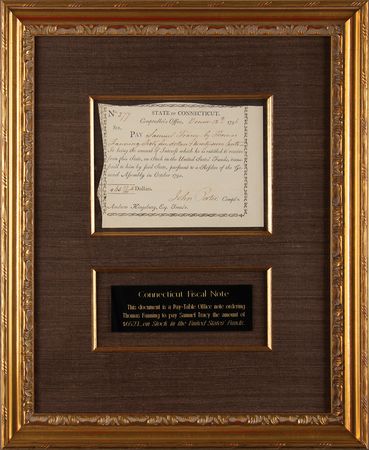 No 277 STATE OF CONNECTICUT.
Comptroller's Office,
SIR,
PAY Samuel Tracy by Thomas
Fanning
to being the amount of Interest which he is entitled to receive
from this State, on Stock in the United States' Funds, trans-
fered to him by said State, pursuant to a Resolve of the Ge-
neral Assembly in October 1790.
Dollars.
John Porter Compt'r
Andrew Kingsbury, Esq. Treas'r.
Connecticut Fiscal Note
This document is a Pay-Table Office note ordering
Thomas Fanning to pay Samuel Tracy the amount of
on Stock in the United States' Funds.